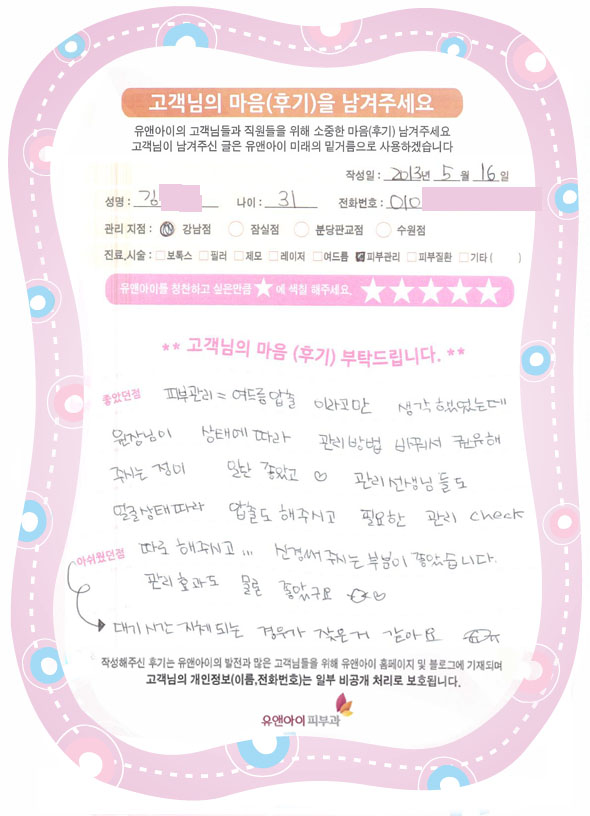 고객님의 마음(후기)을 남겨주세요
유앤아이의 고객님들과 직원들을 위해 소중한 마음(후기) 남겨주세요
고객님이 남겨주신 글은 유앤아이 미래의 밑거름으로 사용하겠습니다
작성일 : 2013년 5 월 16 일
성명 : 김 나이 : 31 전화번호 : 010
관리 지점 : 강남점 잠실점 분당판교점 수원점
진료,시술 : 보톡스 필러 제모 레이저 여드름 피부관리 피부질환 기타 ( )
유앤아이를 칭찬하고 싶은만큼 ★ 에 색칠 해주세요. ★★★★★
** 고객님의 마음 (후기) 부탁드립니다. **
좋았던점 피부관리 = 여드름압출 이라고만 생각했었는데
원장님이 상태에 따라 관리방법 바꿔서 권유해
주시는 점이 일단 좋았고 ♡ 관리선생님들도
얼굴상태따라 압출도 해주시고 필요한 관리 check
아쉬웠던점 따로 해주시고 ... 신경써 주시는 부분이 좋았습니다.
관리효과도 물론 좋았구요
대기시간 지체되는 경우가 잦은거 같아요
작성해주신 후기는 유앤아이의 발전과 많은 고객님들을 위해 유앤아이 홈페이지 및 블로그에 기재되며
고객님의 개인정보(이름,전화번호)는 일부 비공개 처리로 보호됩니다.
유앤아이피부과